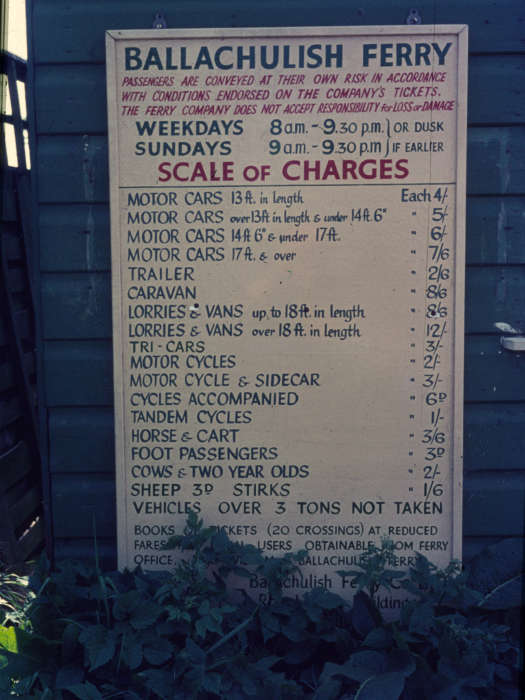 BALLACHULISH FERRY
PASSENGERS ARE CONVEYED AT THEIR OWN RISK IN ACCORDANCE
WITH CONDITIONS ENDORSED ON THE COMPANY'S TICKETS.
THE FERRY COMPANY DOES NOT ACCEPT RESPONSIBILITY for LOSS or DAMAGE
WEEKDAYS 8 a.m. - 9.30 p.m. } OR DUSK
SUNDAYS 9 a.m. - 9.30 p.m } IF EARLIER
SCALE OF CHARGES
MOTOR CARS 13 ft. in length Each 4/-
MOTOR CARS over 13 ft in length & under 14 ft. 6" " 5/-
MOTOR CARS 14 ft 6" & under 17 ft. " 6/-
MOTOR CARS 17 ft. & over " 7/6
TRAILER " 2/6
CARAVAN " 8/6
LORRIES & VANS up to 18 ft. in length " 8/6
LORRIES & VANS over 18 ft. in length " 12/-
TRI-CARS " 3/-
MOTOR CYCLES " 2/-
MOTOR CYCLE & SIDECAR " 3/-
CYCLES ACCOMPANIED " 6D
TANDEM CYCLES " 1/-
HORSE & CART " 3/6
FOOT PASSENGERS " 3D
COWS & TWO YEAR OLDS " 2/-
SHEEP 3D STIRKS " 1/6
VEHICLES OVER 3 TONS NOT TAKEN
BOOKS TICKETS (20 CROSSINGS) AT REDUCED
FARES USERS OBTAINABLE FERRY
OFFICE. BALLACHULISH FERRY
Ballachulish Ferry